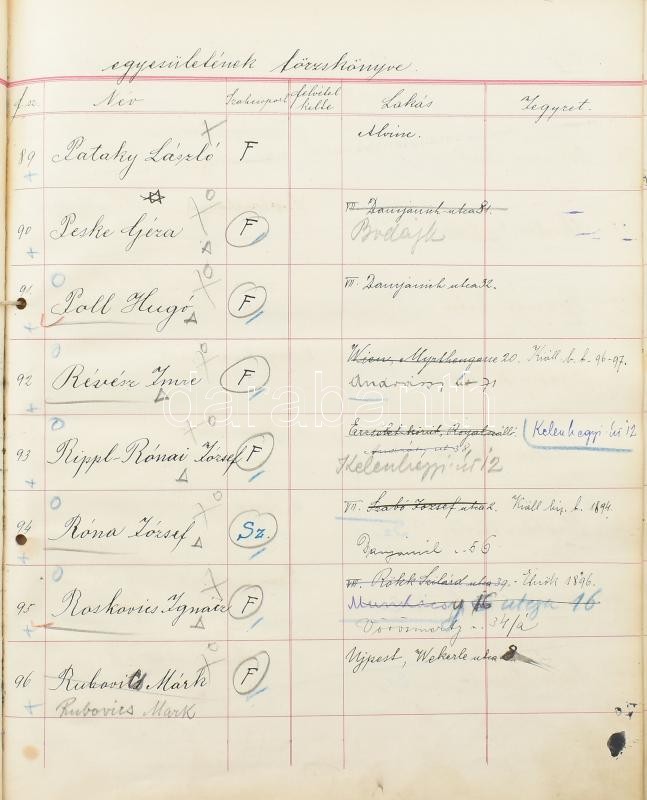 egyesületének törzskönyve.
f. sz. Név Szakcsoport felvétel kelte Lakás Jegyzet.
89 Pataky László F Alvinc.
90 Peske Géza F VII. Damjanich utca 31.
Bodajk
91 Poll Hugó F VII. Damjanich utca 32.
92 Révész Imre F Wien, Myrthengasse 20. Kiáll. b. t. 96-97.
Andrássy út 71
93 Rippl-Rónai József F Erzsébet körút, Royal szálló. Kelenhegyi út 12
Kelenhegyi út 12
94 Róna József Sz. VII. Szabó József utca Kiáll. biz. t. 1894.
Damjanich u. 56
95 Roskovics Ignácz F VIII. Rökk Szilárd utca 39. - Elnök 1896.
Munkácsy 16 utcza 16
Vörösmarty u. 34/a
96 Rubovics Márk F Ujpest, Wekerle utca 8.
Rubovics Mark
darabanth